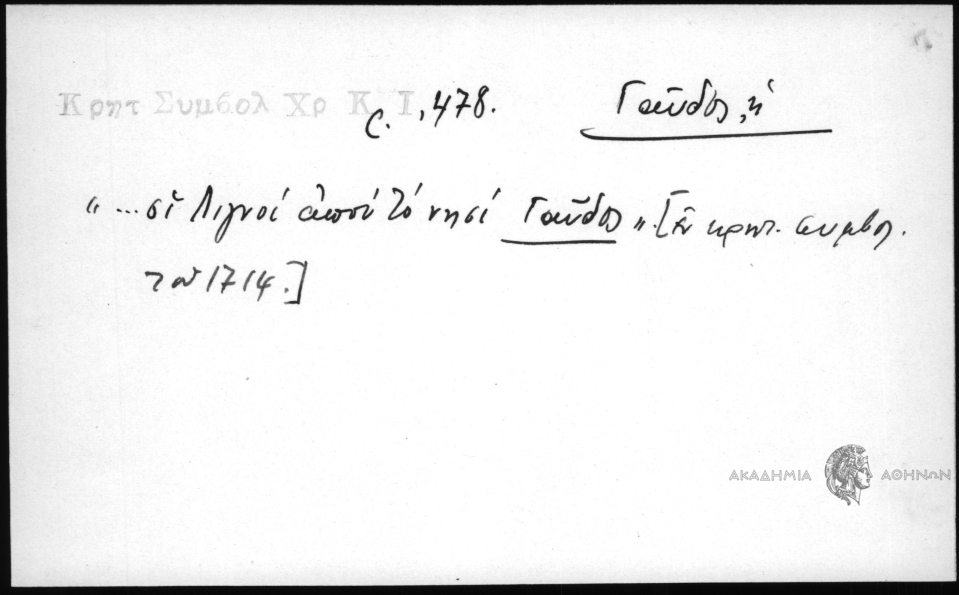 Κρητ Συμβολ Χρ Κ Ι
σ. 478. Γαῦδος, ἡ
"... οἱ Λιγνοί ἀπού τό νησί Γαῦδος". [Ἐν κρητ. συμβολ.
τοῦ 1714.]
ΑΚΑΔΗΜΙΑ ΑΘΗΝΩΝ